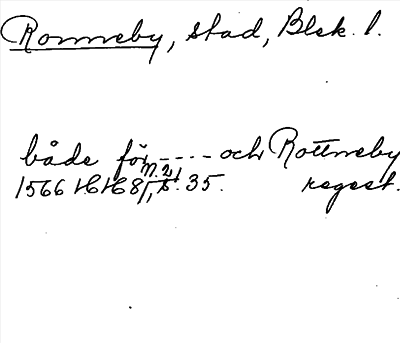 Ronneby, stad, Blek. l.
både för ---- och Rottneby
1566 16/6 8/1, s. 35. regest.
n. 21